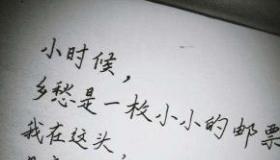 小时候，
乡愁是一枚小小的邮票
我在这头，